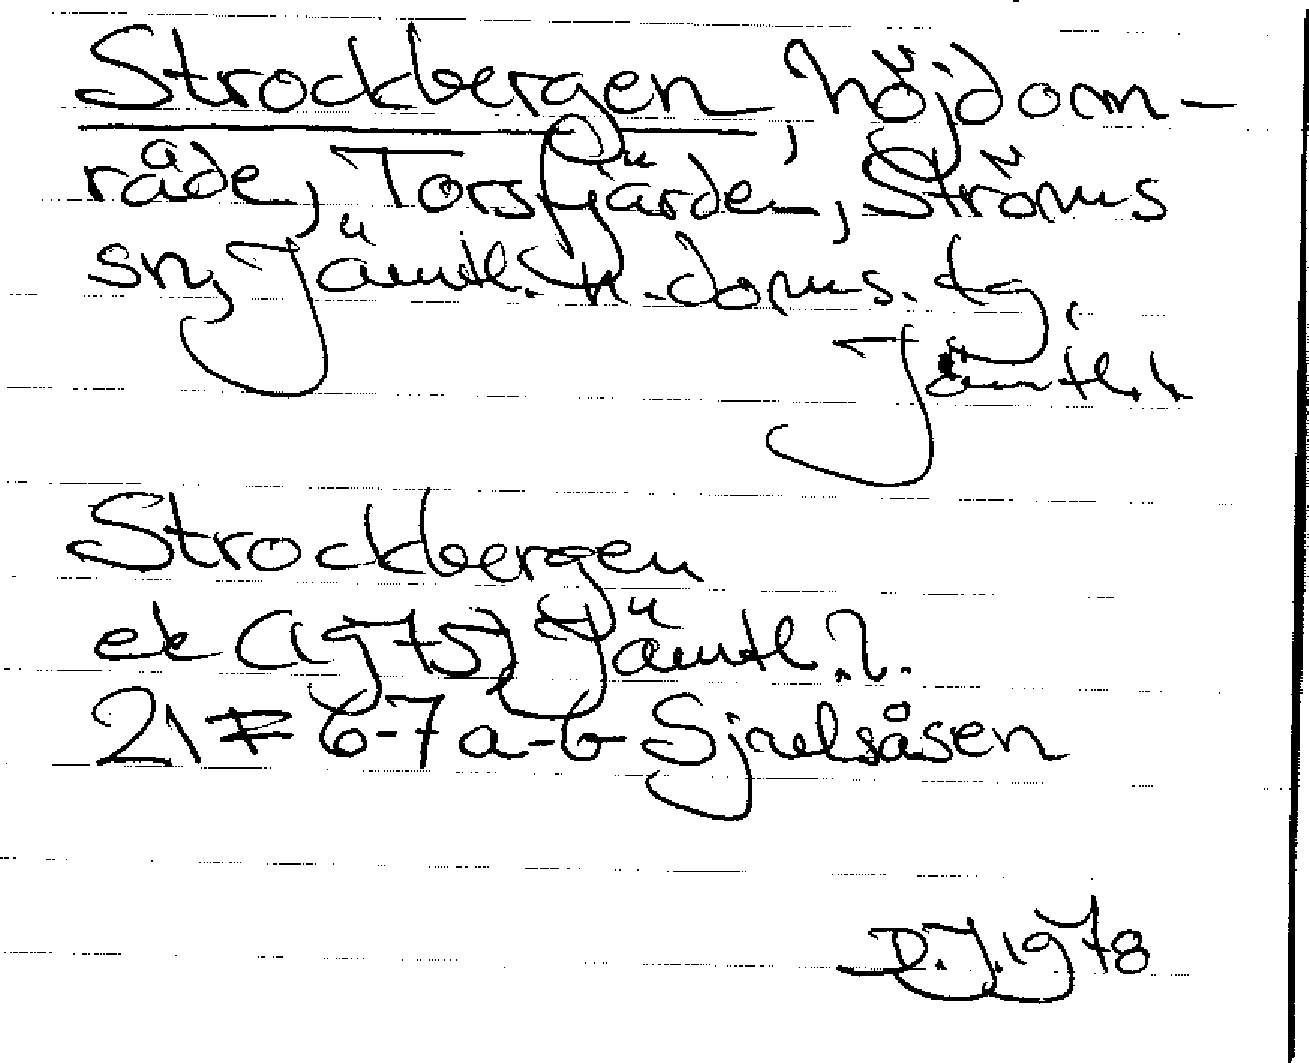 Strockbergen, höjdom-
råde, Torsfjärden, Ströms
sn, Jämtl. n. doms. tg,
Jämtl. l
Strockbergen
ek (1975) Jämtl. l.
21 F 6-7 a-b Sjulsåsen
D.J. 1978